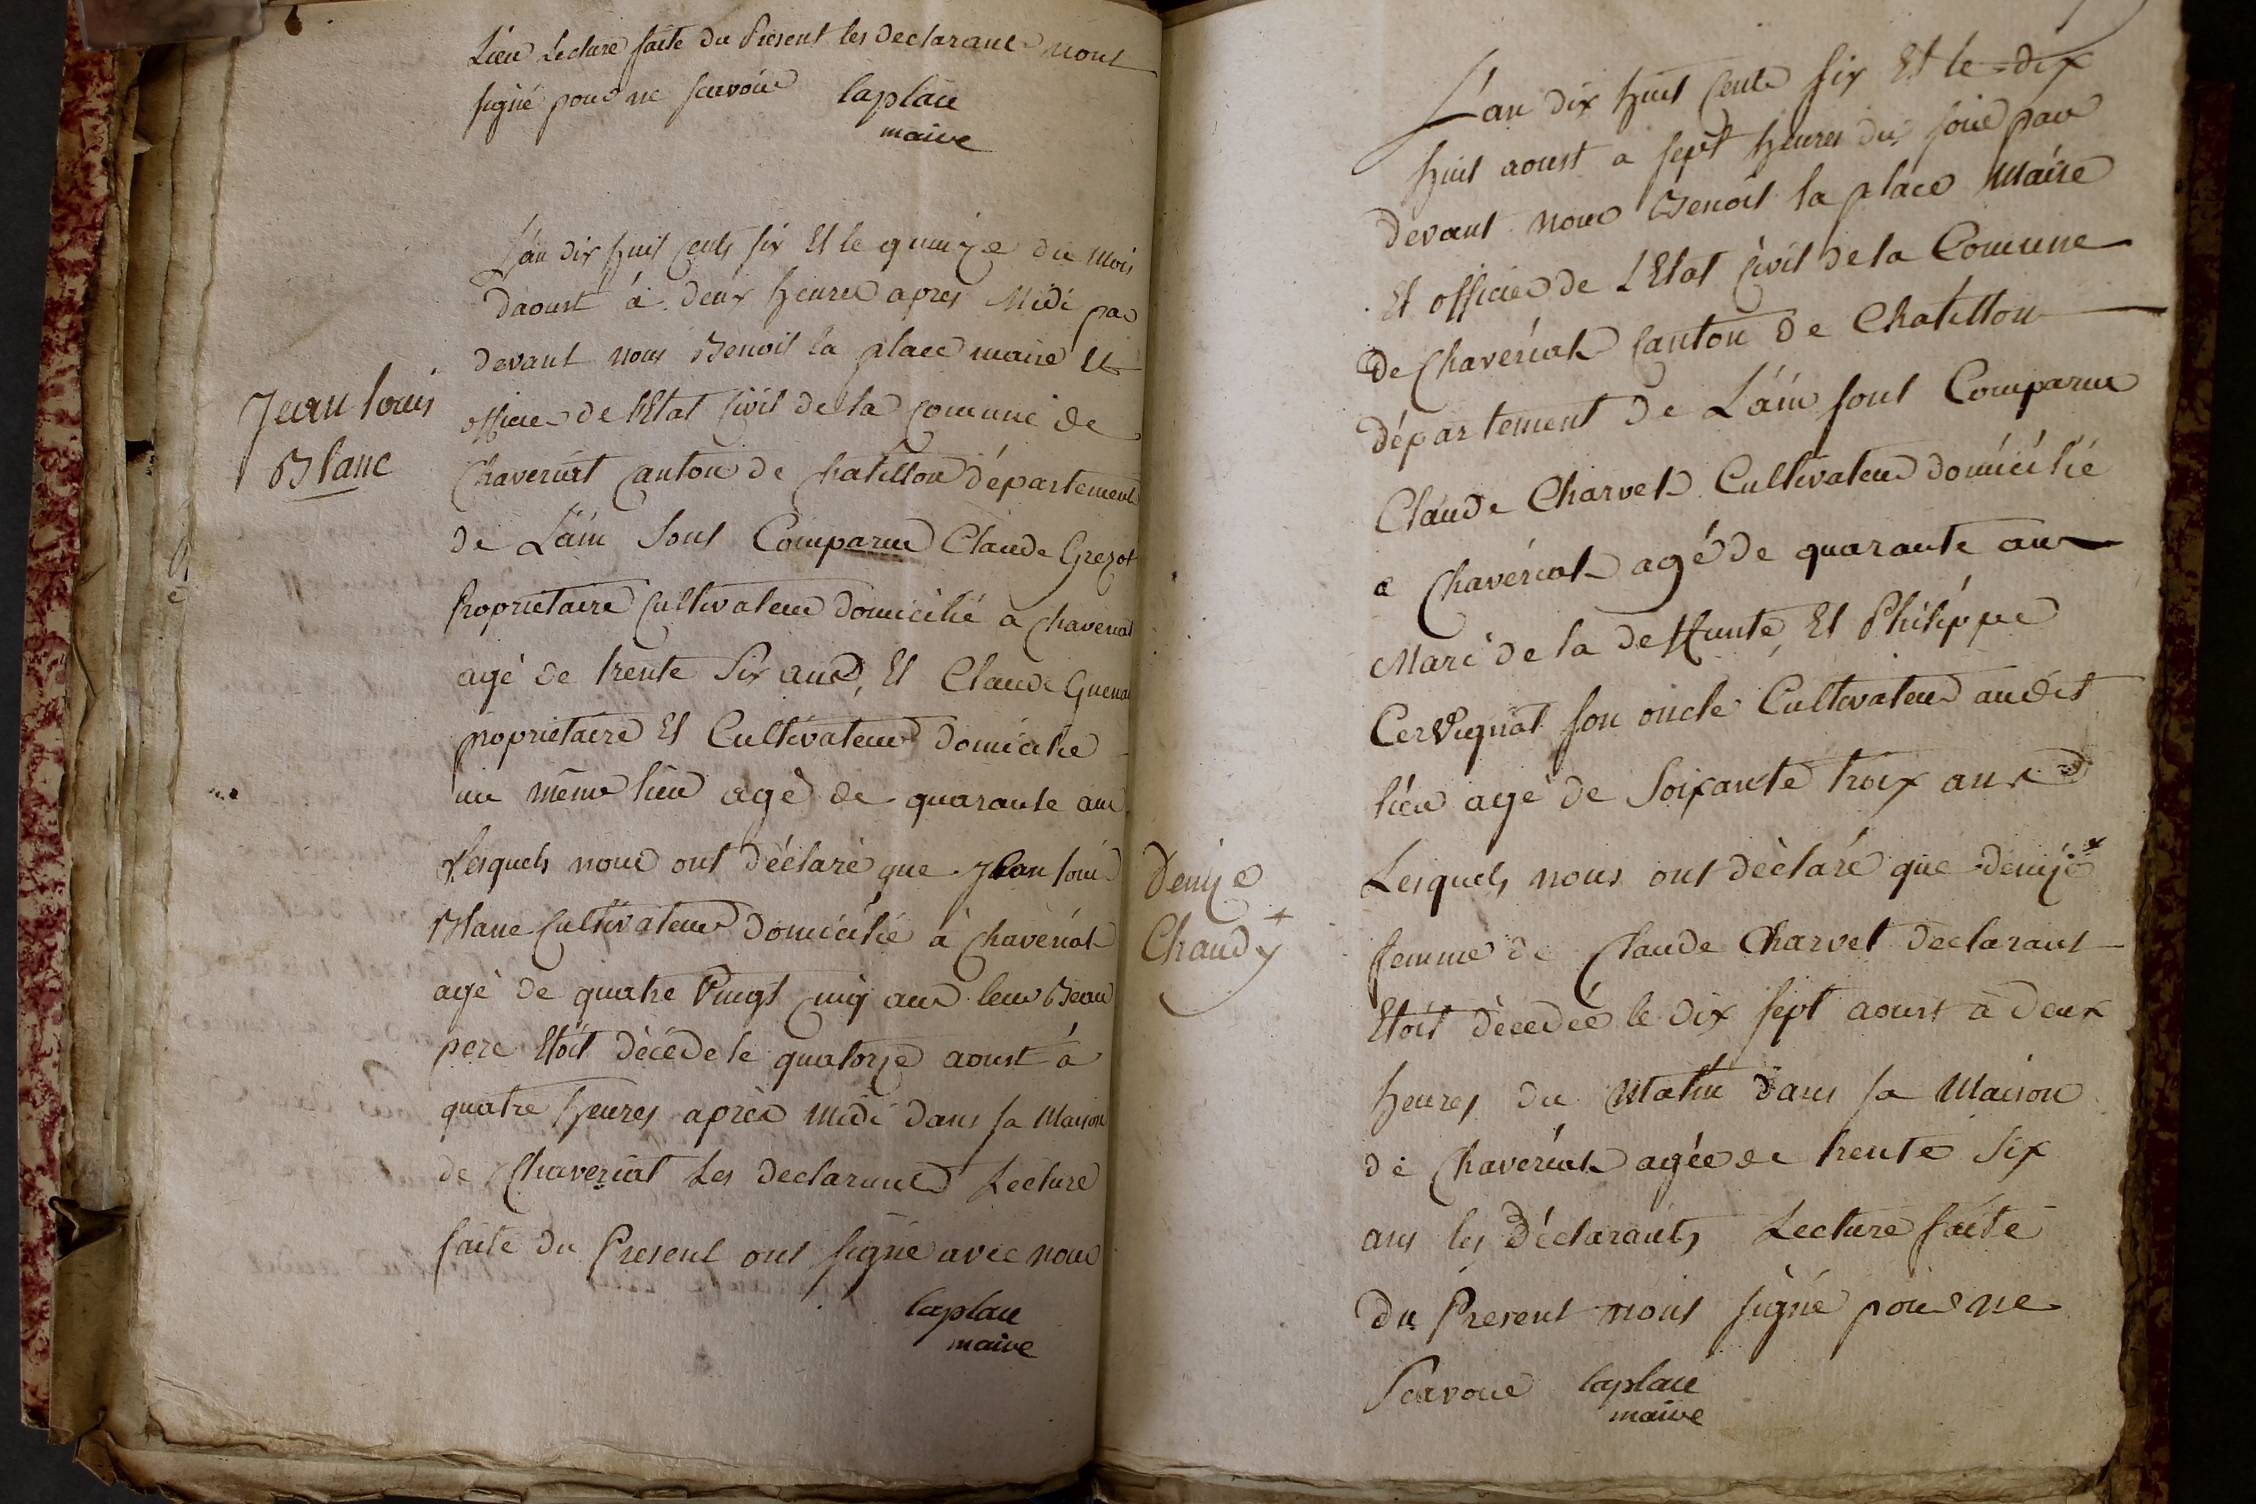 Lieu Lecture faite du Présent les declarant nont
signé pour ne scavoir laplace
maire
L'an dix huit cents six Et le quinze du mois
daoust à deux heures apres Midi par
devant nous Benoit la place maire Et
officier de lEtat civil de la comune de
Chaveriat canton de Chatillon département
de L'ain sont Comparus Claude Grezot
proprietaire cultivateur domicilié a chaveriat
agé de trente six ans, Et Claude
proprietaire Et Cultivateur domicilie
au même lieu agé de quarante ans
Lesquels nous ont déclaré que Jean louis
Blanc Cultivateur domicilié à Chavériat
agé de quatre vingt cinq ans leur Beau
pere Etoit décédé le quatorze aoust à
quatre heures après midi dans sa Maison
de Chaveriat Les declarants Lecture
faite du Present ont signé avec nous
laplace
maire
Jean louis
Blanc
L'an dix huit cents six Et le dix
huit aoust a sept heures du soir par
devant nous Benoit la place Maire
Et officier de L'Etat civil de la Comune
de Chavériat canton de Chatillon
département de L'ain sont Comparus
Claude Charvet Cultivateur domicilié
a Chavériat agé de quarante ans
Mari de la deffunte, Et Philippe
Cervignat son oncle Cultivateur audit
lieu agé de Soixante troix ans
Lesquels nous ont dèclaré que denize
femme de Claude Charvet declarant
Etoit dècedée le dix sept aoust à deux
heures du Matin dans sa Maison
de Chavériat agée de trente six
ans les Déclarants Lecture faite
du Present nont signé pour ne
Scavoir laplace
maire
Denize
Chaudy